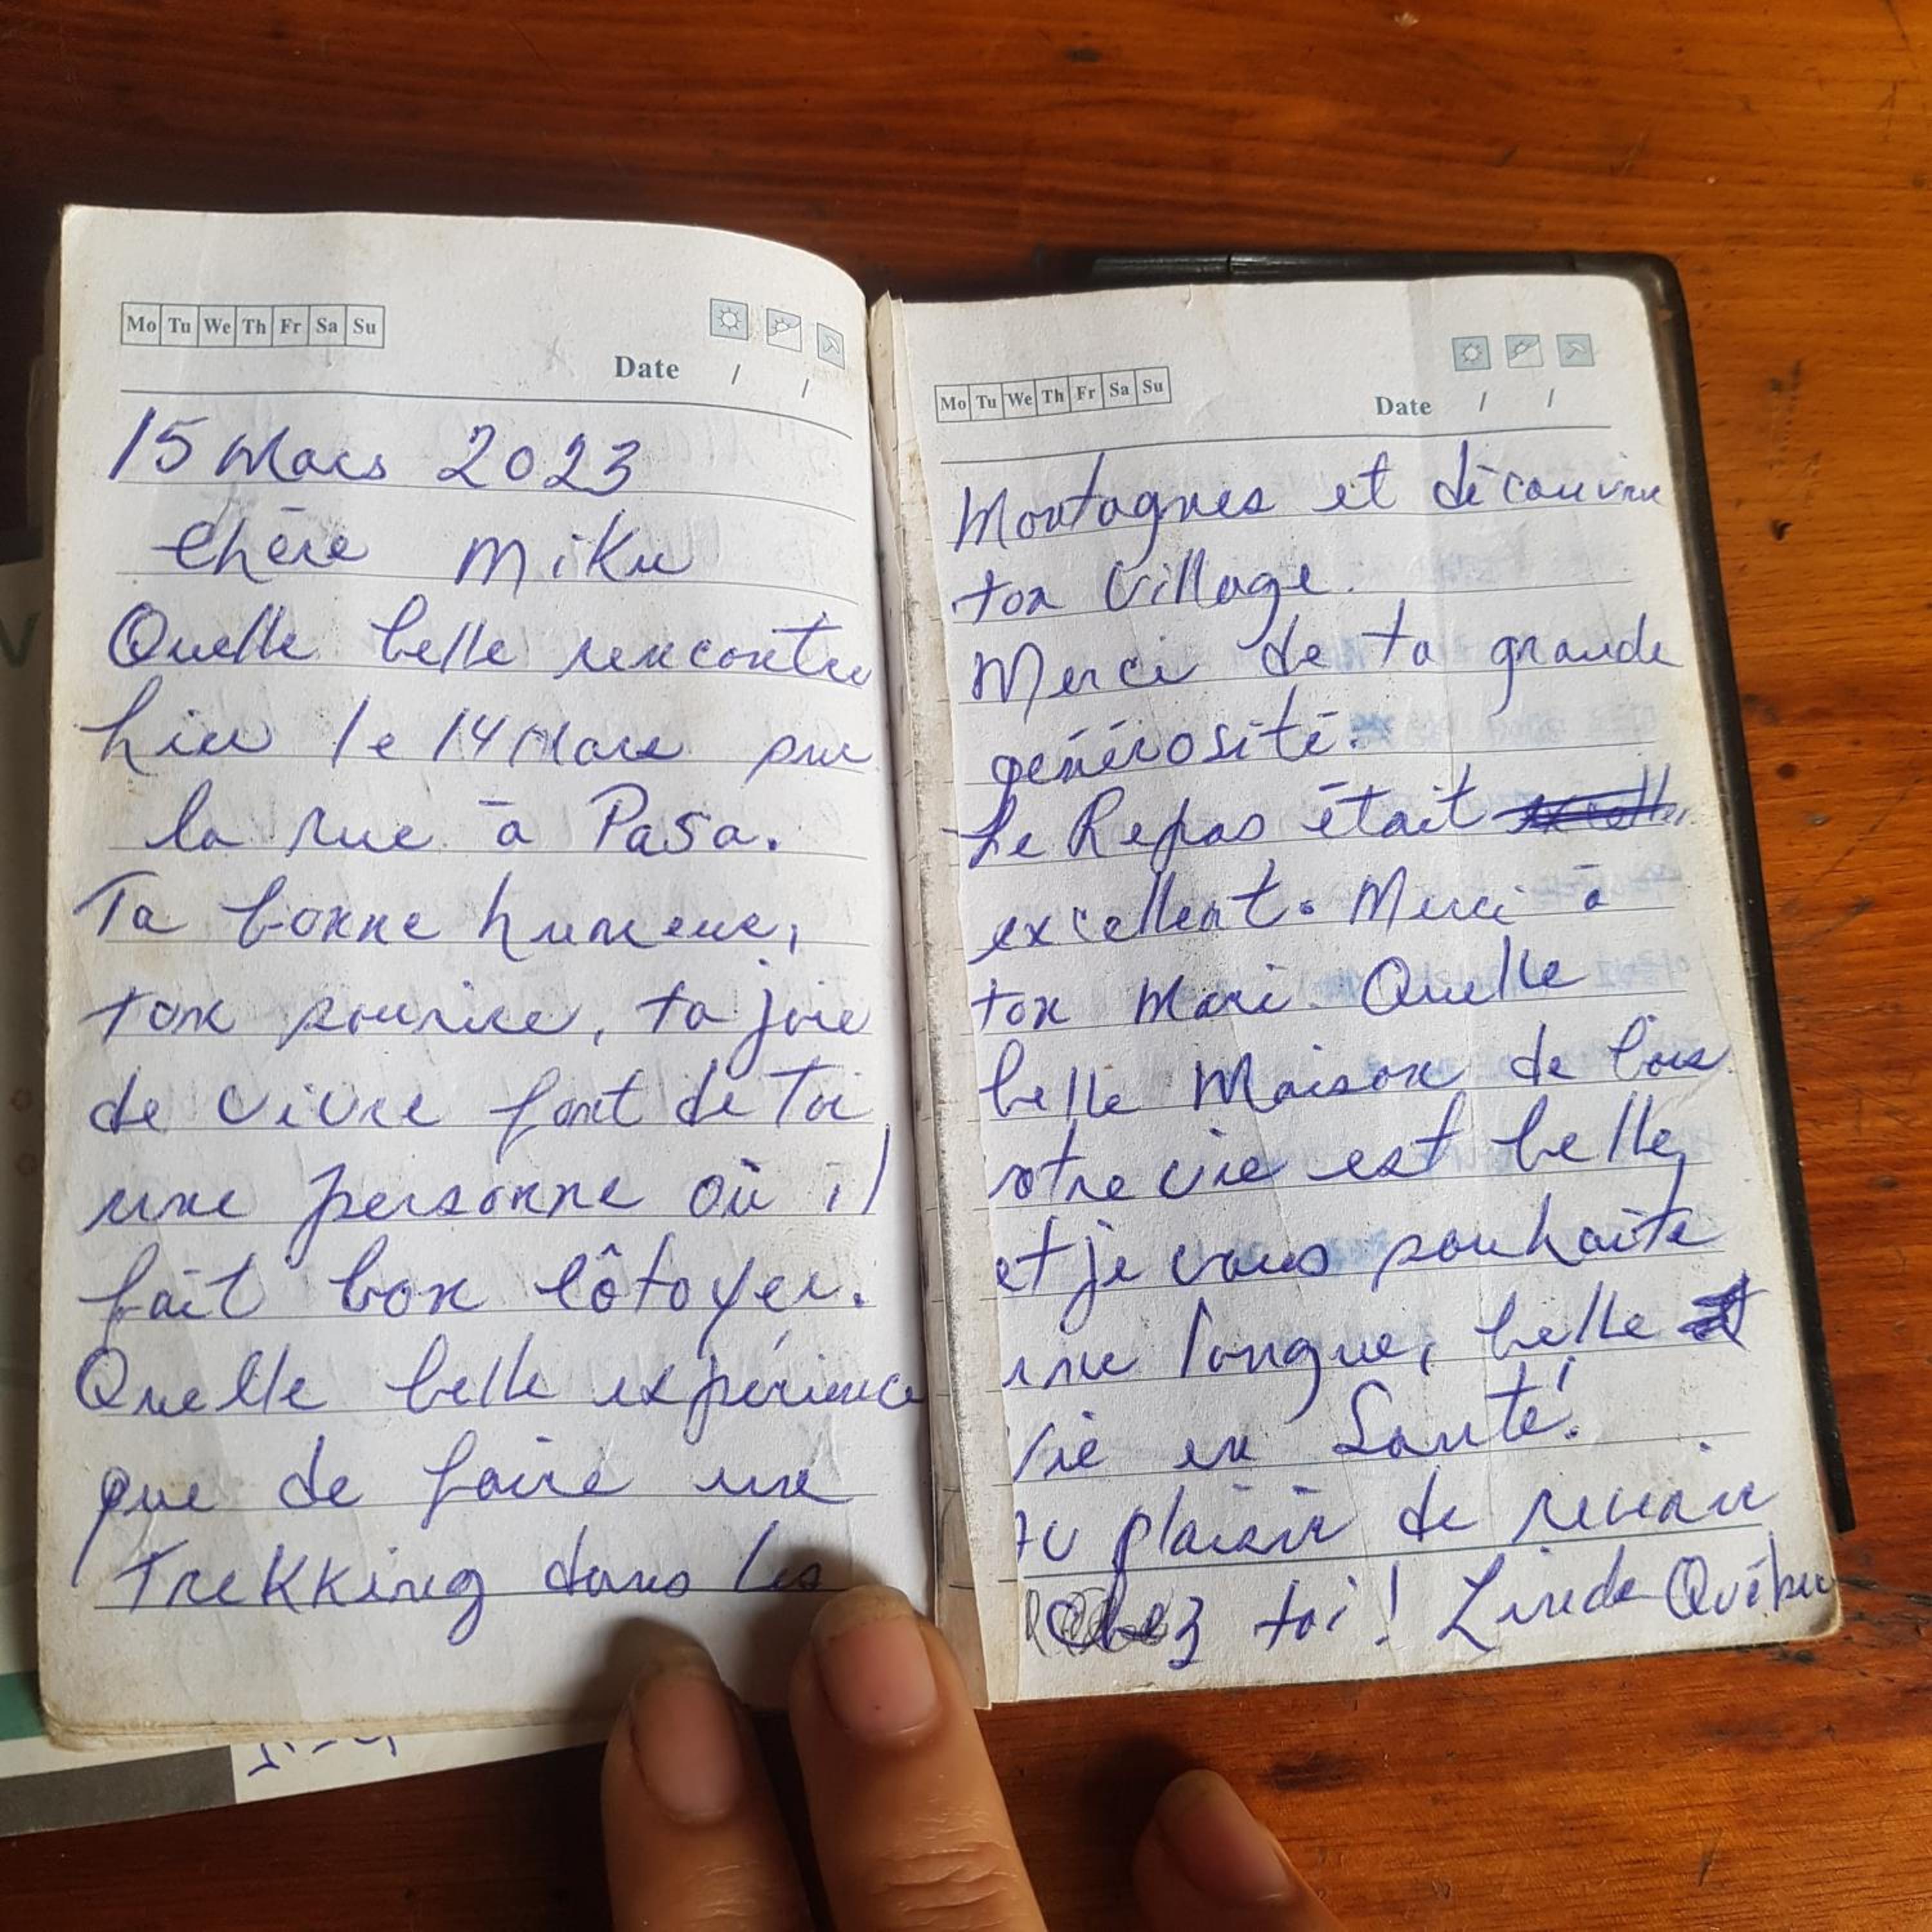 Mo Tu We Th Fr Sa Su
Date / /
15 Mars 2023
Chère Miku
Quelle belle rencontre
hier le 14 Mars sur
la rue à Pasa.
Ta bonne humeur,
ton sourire, ta joie
de vivre font de toi
une personne où il
fait bon côtoyer.
Quelle belle expérience
que de faire une
Trekking dans les
Mo Tu We Th Fr Sa Su
Date / /
Montagnes et découvrir
ton village.
Merci de ta grande
générosité.
Le Repas était
excellent. Merci à
ton Mari. Quelle
belle Maison de bois
votre vie est belle,
et je vous souhaite
une longue, belle
Vie en Santé!
Au plaisir de revenir
chez toi! Linda Québec